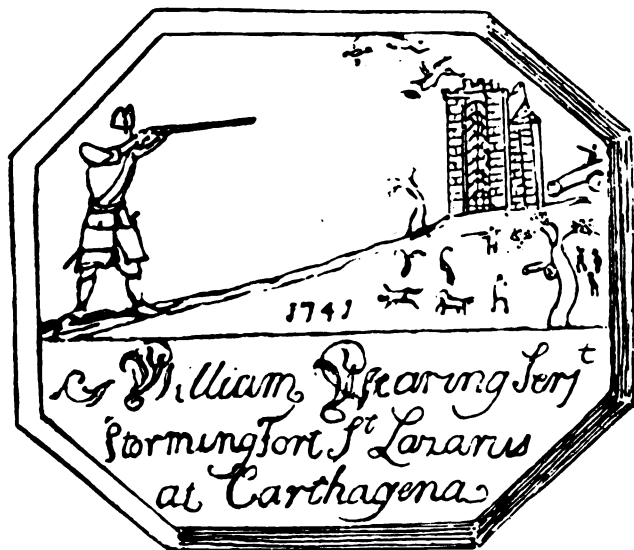 1741
William Wearing Serjt
Storming Fort St Lazarus
at Carthagena